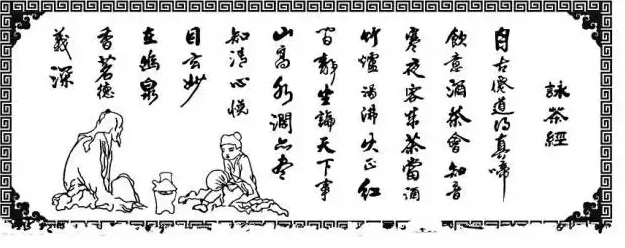 詠茶經
自古僊道得真啼
飲意酒茶會知音
寒夜客來茶當酒
竹爐湯沸火正紅
靜坐論天下事
山高水潤亦盡
知清心悅
目玄妙
在幽泉
香茗德
義深